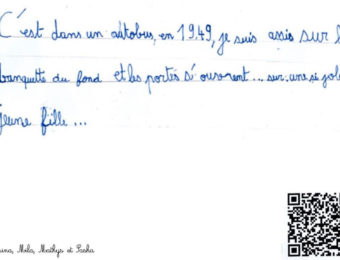 C'est dans un autobus, en 1949, je suis assis sur l
banquette du fond et les portes s'ouvrent... sur une si jol
jeune fille...
una, Mila, Mathys et Sasha